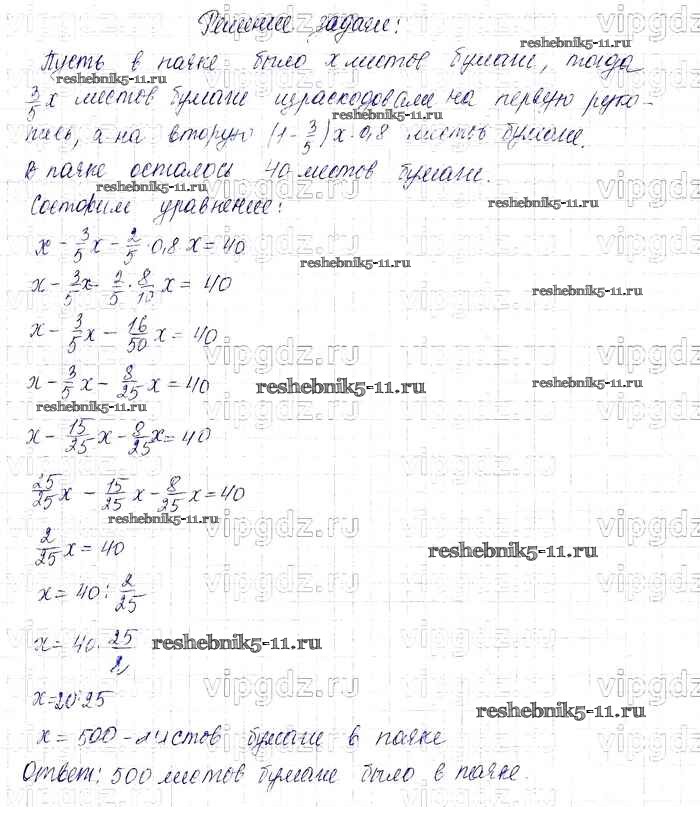 Решение задачи:
Пусть в пачке было x листов бумаги, тогда
3/5 x листов бумаги израсходовали на первую руко-
пись, а на вторую (1 - 3/5)x·0,8 листов бумаги.
В пачке осталось 40 листов бумаги.
Составим уравнение:
x - 3/5 x - 2/5 · 0,8 x = 40
x - 3/5 x - 2/5 · 8/10 x = 40
x - 3/5 x - 16/50 x = 40
x - 3/5 x - 8/25 x = 40
x - 15/25 x - 8/25 x = 40
25/25 x - 15/25 x - 8/25 x = 40
2/25 x = 40
x = 40 : 2/25
x = 40 · 25/2
x = 20·25
x = 500 - листов бумаги в пачке
Ответ: 500 листов бумаги было в пачке.
reshebnik5-11.ru
vipgdz.ru